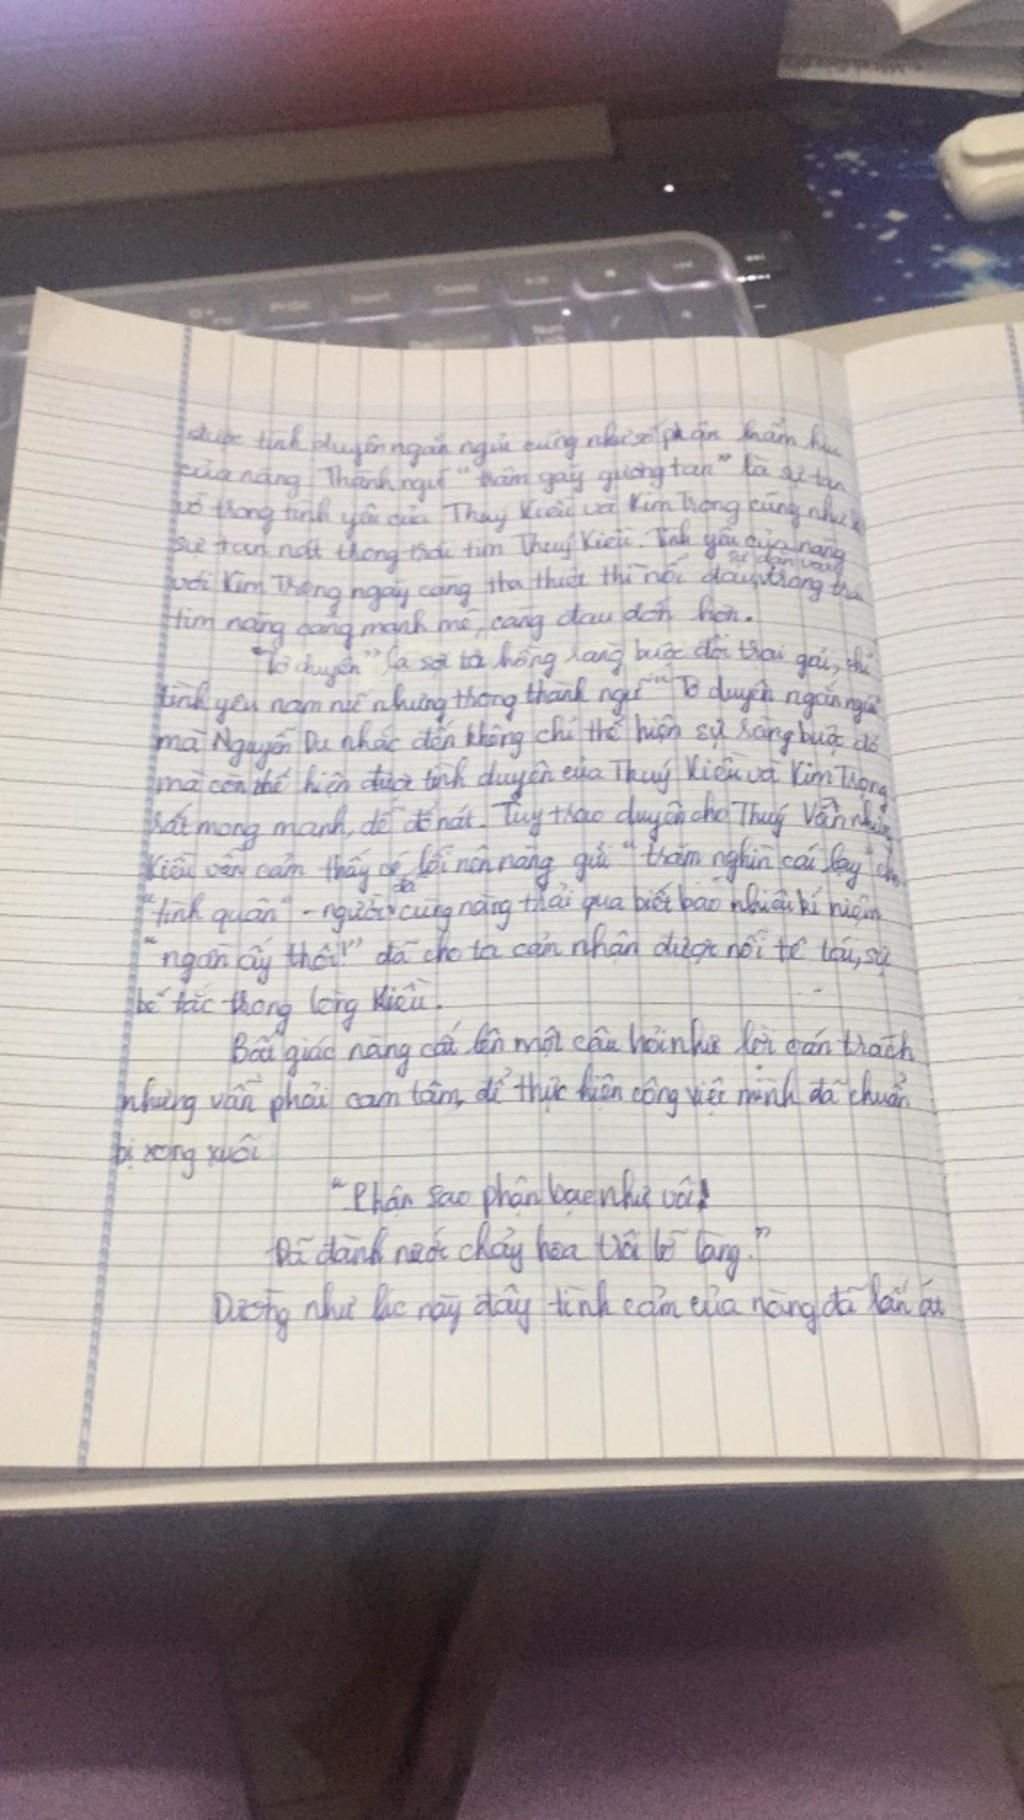 được tình duyên ngắn ngủi cũng như số phận thảm
của nàng. Thành ngữ "trâm gãy gương tan" là sự tan
vỡ trong tình yêu của Thuý Kiều và Kim Trọng cũng như
sự tan nát trong trái tim Thuý Kiều. Tình yêu của nàng
với Kim Trọng ngày càng tha thiết thì nỗi đau, sự dằn vặt trong
tim nàng càng mạnh mẽ, càng đau đớn hơn.
"Tơ duyên" là sợi tơ hồng ràng buộc đôi trai gái, chỉ
tình yêu nam nữ nhưng trong thành ngữ "Tơ duyên ngắn ngủi"
mà Nguyễn Du nhắc đến không chỉ thể hiện sự ràng buộc đó
mà còn thể hiện được tình duyên của Thuý Kiều và Kim Trọng
rất mong manh, dễ đổ nát. Tuy trao duyên cho Thuý Vân nhưng
Kiều vẫn cảm thấy có lỗi nên nàng gửi "trăm nghìn cái lạy" cho
"tình quân" - người đã cùng nàng trải qua biết bao nhiêu kỉ niệm
"ngần ấy thôi!" đã cho ta cảm nhận được nỗi tê tái, sự
bế tắc trong lòng Kiều.
Bất giác nàng cất lên một câu hỏi như lời oán trách
nhưng vẫn phải cam tâm, để thực hiện công việc mình đã chuẩn
bị xong xuôi
"Phận sao phận bạc như vôi!
Đã đành nước chảy hoa trôi lỡ làng."
Dường như lúc này đây tình cảm của nàng đã lấn át